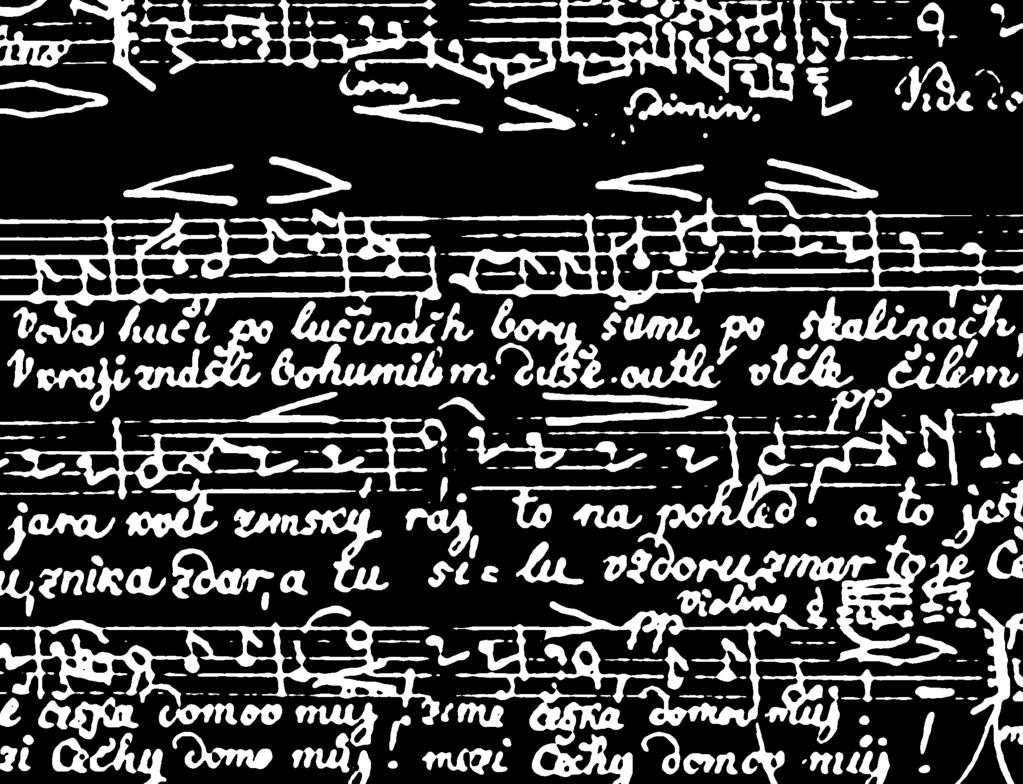 Corno
Dimin.
Kde do
Voda hučí po lučinách bory šumí po skalinách
V kraji znáš-li bohumilém. Duše outlé v těle čilém
jara květ zemský ráj to na pohled! a to jest
zniká zdar, a tu sí= lu vzdoru zmar to je Če
Violino
pp
pp
e česká domov můj! země česká domov můj!
zi Čechy domo můj! mezi Čechy domov můj!